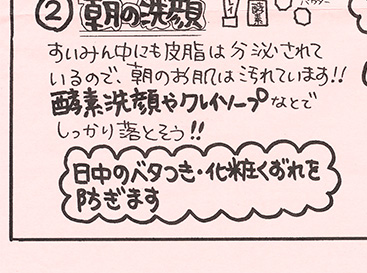 ② 朝の洗顔
酵素
パウダー
すいみん中にも皮脂は分泌されて
いるので、朝のお肌は汚れています!!
酵素洗顔やクレイソープなどで
しっかり落とそう!!
日中のベタつき・化粧くずれを
防ぎます